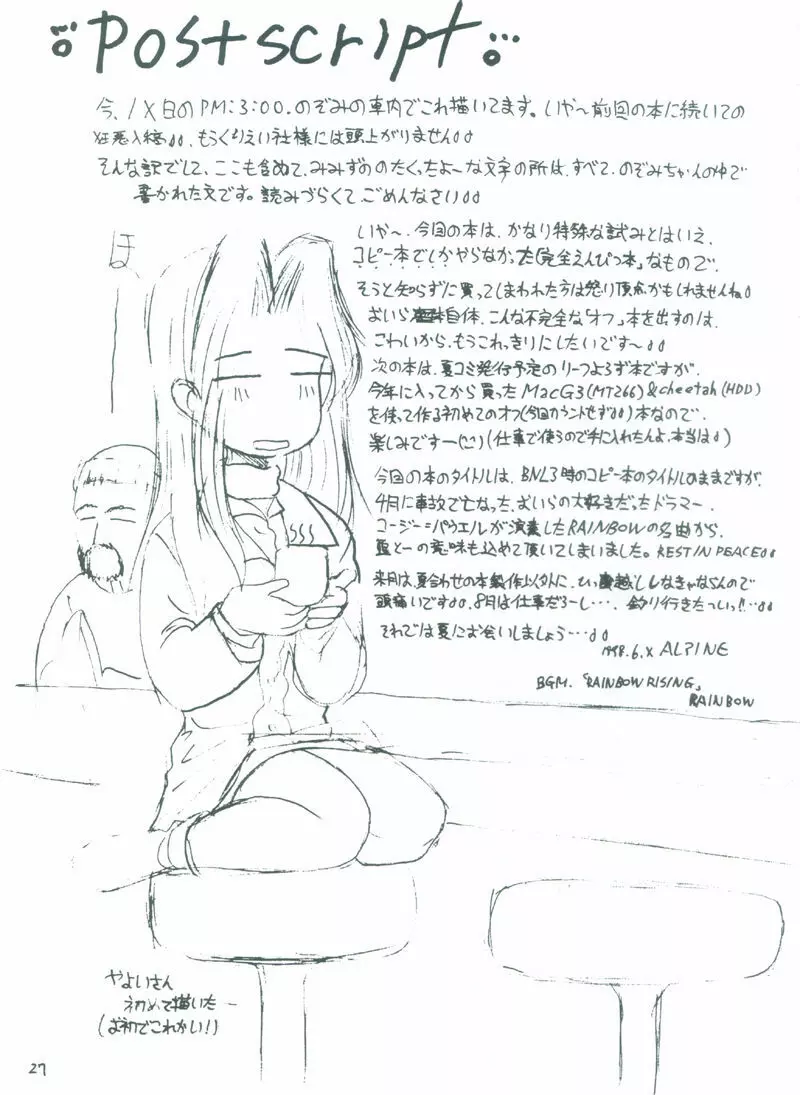 Postscript
今、1X日のPM:3:00.のぞみの車内でこれ描いてます。いや～前回の本に続いての
狂悪入稿、もうくりえい社様には頭上がりません
そんな訳でして、ここも含めて、みみずののたくったよーな文字の所は、すべて、のぞみちゃんの中で
書かれた文です。読みづらくて、ごめんなさい
いや～、今回の本は、かなり特殊な試みとはいえ、
コピー本でしかやらなかった「完全えんぴつ本」なもので、
そうと知らずに買ってしまわれた方は怒り頂点かもしれませんね
おいら自体、こんな不完全な「オフ」本を出すのは、
こわいから、もうこれっきりにしたいです～
次の本は、夏コミ発行予定のリーフよろず本ですが、
今年に入ってから買ったMacG3(MT266)&cheetah(HDD)
を使って作る初めてのオフ(今回カウントせず)本なので、
楽しみですー(仕事で使うので手に入れたんよ、本当は)
今回の本のタイトルは、BNL3時のコピー本のタイトルのままですが、
4月に事故で亡なった、おいらの大好きだったドラマー、
コージー=パウエルが演奏したRAINBOWの名曲から、
追とーの意味も込めて頂いてしまいました。REST IN PEACE
来月は、夏合わせの本製作以外に、ひっ越ししなきゃならんので
頭痛いです、8月は仕事だろーし…、釣り行きたっいっ!!…
それでは夏にお会いしましょう…
1998.6.X ALPINE
BGM.「RAINBOW RISING」
RAINBOW
ほ
やよいさん
初めて描いたー
(お初でこれかい!)
27